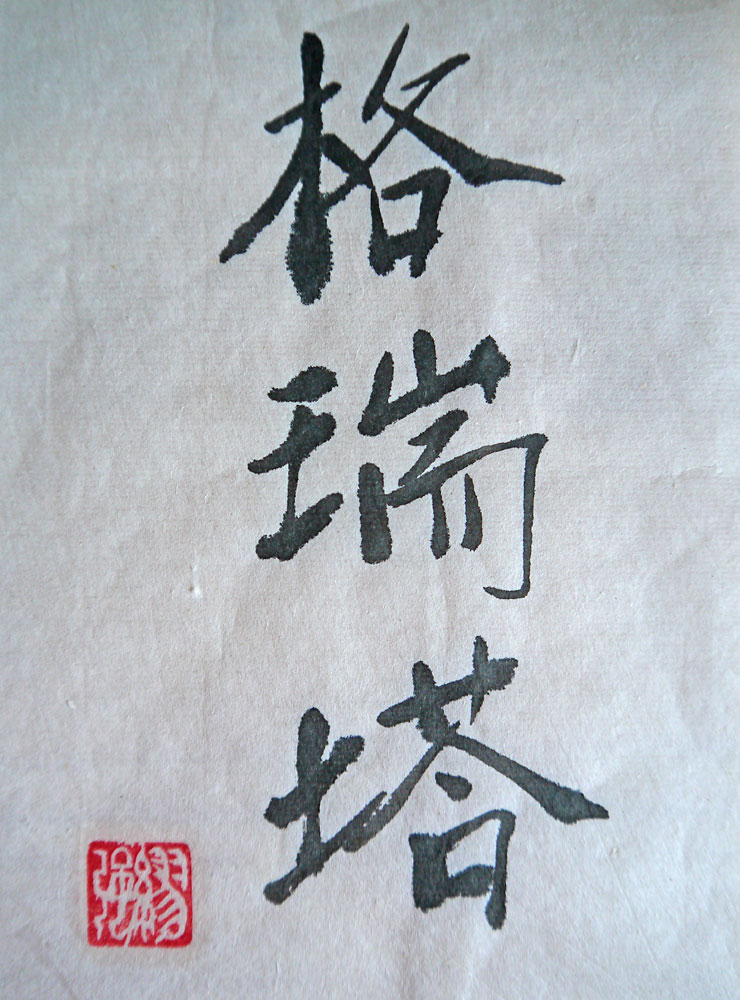 格瑞塔